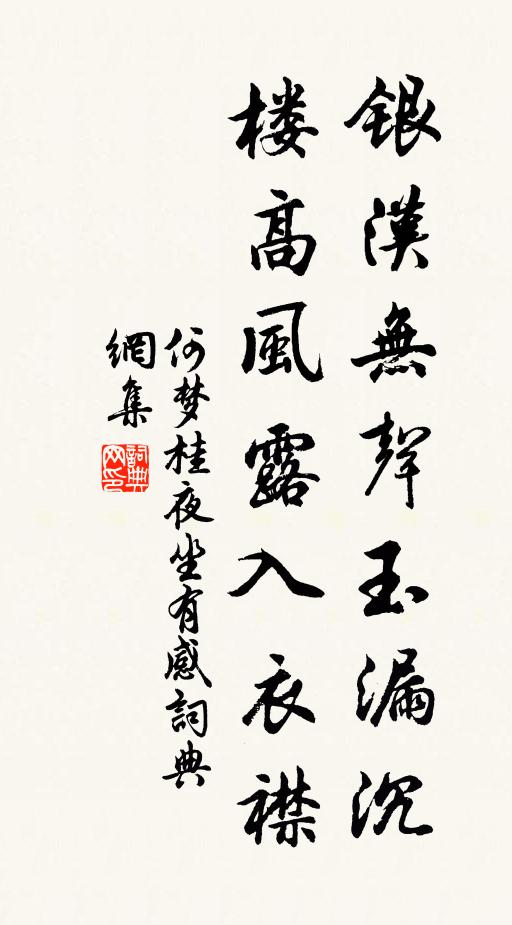 銀漢無聲玉漏沉
楼高風露入衣襟
何梦桂夜坐有感詞典
網集
詞典
网印